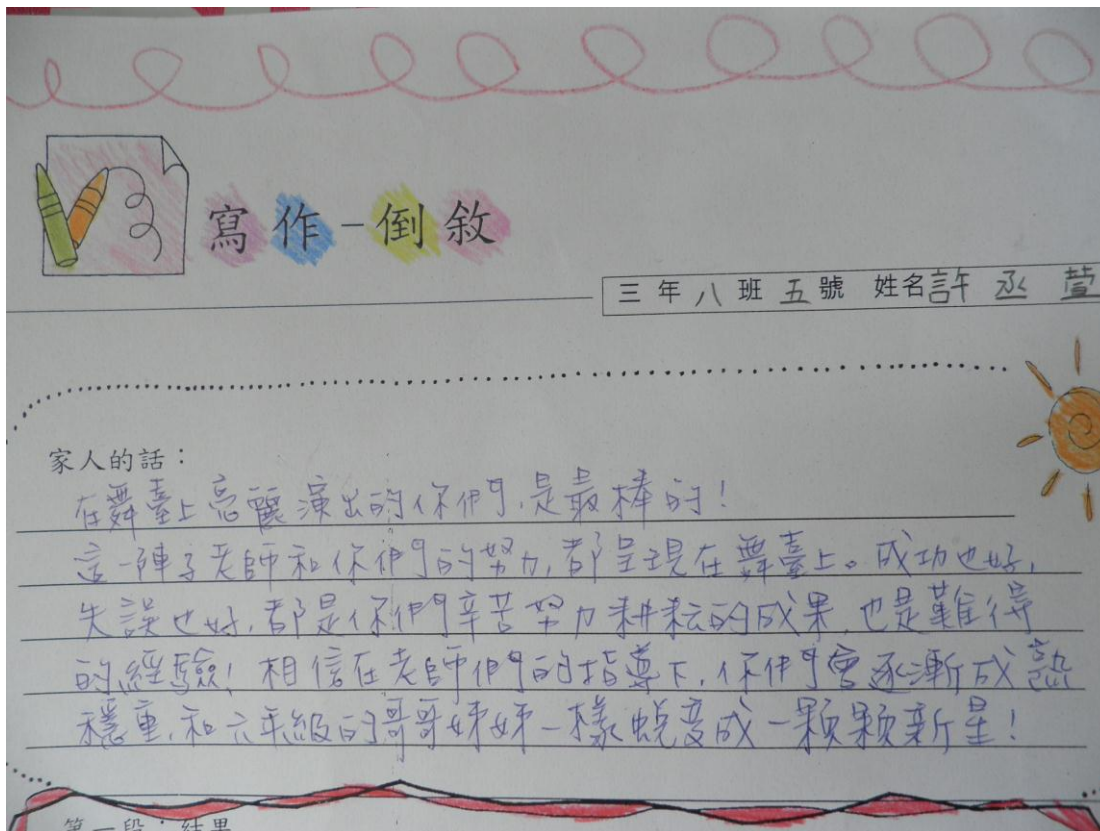 寫作-倒敘
三年八班五號 姓名許丞萱
家人的話：
在舞臺上亮麗演出的你們,是最棒的!
這一陣子老師和你們的努力,都呈現在舞臺上。成功也好,
失誤也好,都是你們辛苦努力耕耘的成果,也是難得
的經驗!相信在老師們的指導下,你們會逐漸成熟
穩重,和六年級的哥哥姊姊一樣蛻變成一顆顆新星!
第一段：結果